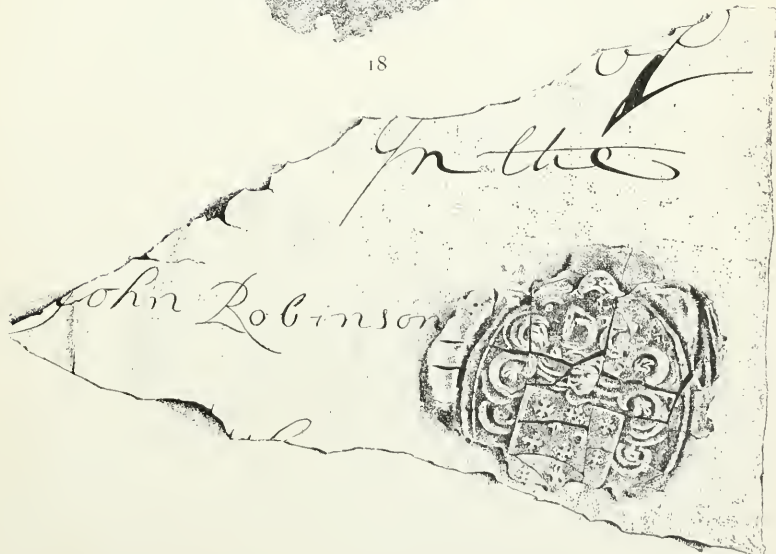 18
of
in the
John Robinson